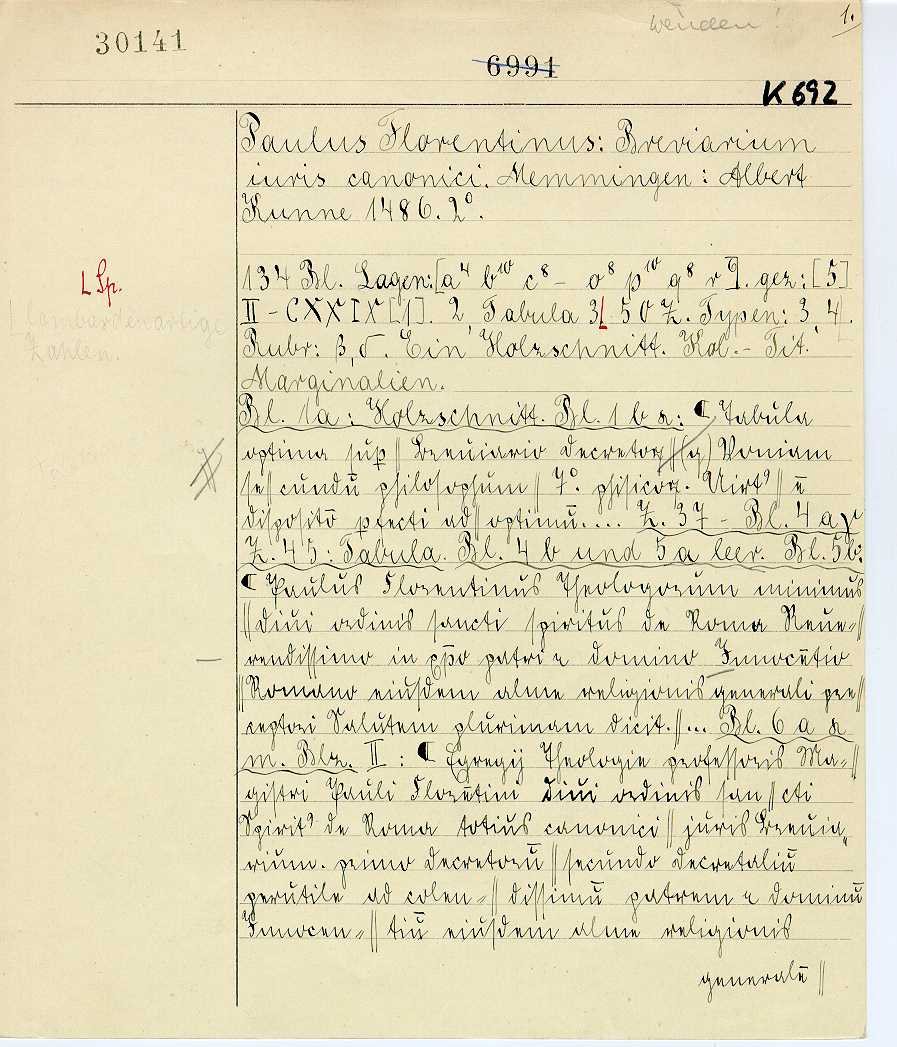 wenden! 1.
30141
6991
K 692
Paulus Florentinus: Breviarium
iuris canonici. Memmingen: Albert
Kunne 1486. 2°.
L Sp.
134 Bl. Lagen: [a⁴ b¹⁰ c⁸ – o⁸ p¹⁰ q⁸ r⁶]. gez: [5]
II – CXXIX [1]. 2, Tabula 3 50 Z. Typen: 3, 4.
lombardenartige
Zahlen.
Rubr: β, δ. Ein Holzschnitt. Kol.-Tit.
Marginalien.
Bl. 1a: Holzschnitt. Bl. 1 b α: ¶ Tabula
optima suꝑ // Breuiario decretoꝝ // (q) Voniam
se // cundū philosophum // 7°. phisicoꝝ. Uirtꝰ // ē
dispositō ꝑfecti ad // optimū.... Z. 37 – Bl. 4 a γ
Z. 45: Tabula. Bl. 4 b und 5 a leer. Bl. 5b:
¶ Paulus Florentinus Theologorum minimus
// diui ordinis sancti spiritus de Roma Reue⸗//
rendissimo in xp̄o patri ⁊ domino Innocētio
// Romano eiusdem alme religionis generali pre
ceptori Salutem plurimam dicit. // ... Bl. 6 a α
m. Blz. II: ¶ Egregij Theologie professoris Ma⸗//
gistri Pauli Florētini diui ordinis san // cti
Spiritꝰ de Roma totius canonici // juris Breuia⸗
rium. primo decretorū // secundo decretaliū
perutile ad colen⸗// dissimū patrem ⁊ dominū
Innocen⸗// tiū eiusdem alme religionis
generalē //